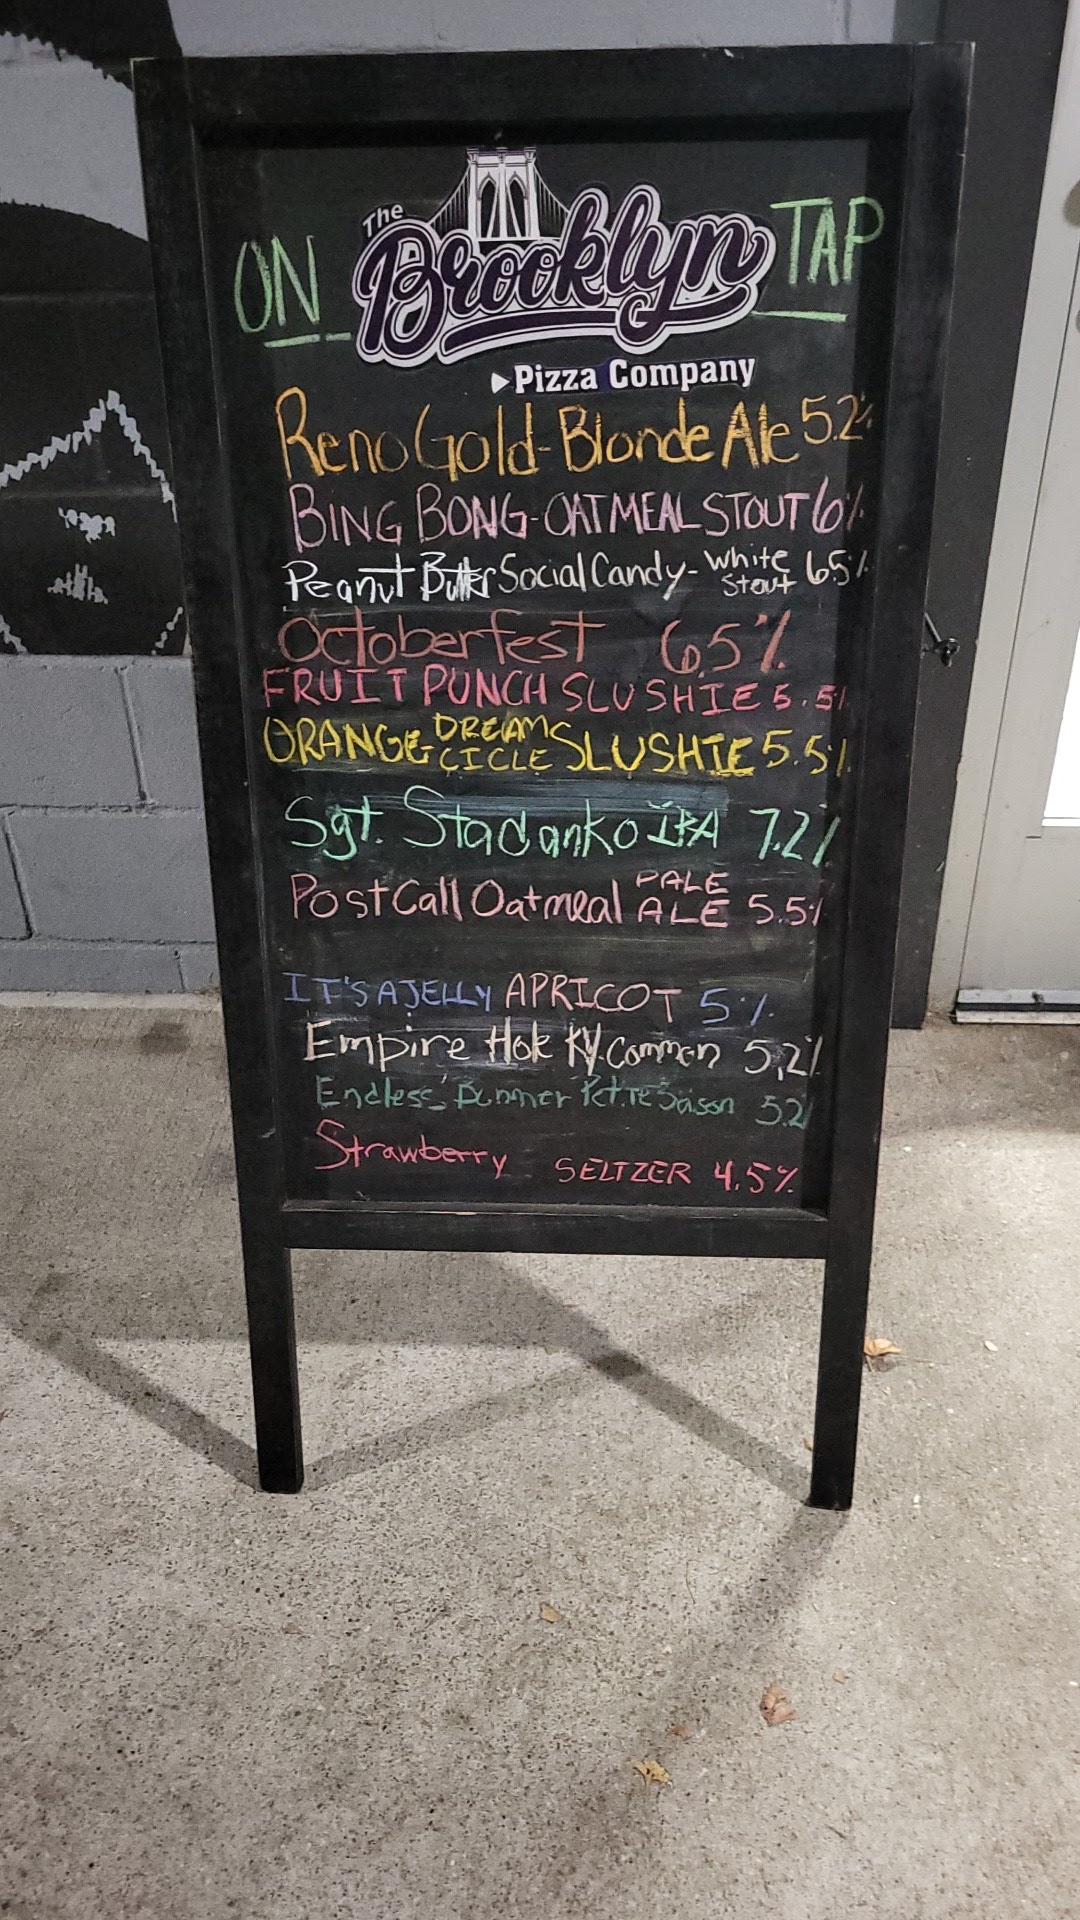 ON The Brooklyn TAP
G
Pizza Company
Reno Gold - Blonde Ale 5.2%
BING BONG - OATMEAL STOUT 6%
Peanut Butter Social Candy - White Stout 6.5%
Octoberfest 6.5%
FRUIT PUNCH SLUSHIE 5.5%
ORANGE - DREAMSCICLE SLUSHIE 5.5%
Sgt. Stadanko IPA 7.2%
Post Call Oatmeal PALE ALE 5.5%
IT'S A JELLY APRICOT 5%
Empire Hok Ky. Common 5,2%
Endless, Bummer Petite Saison 5.2%
Strawberry SELTZER 4.5%